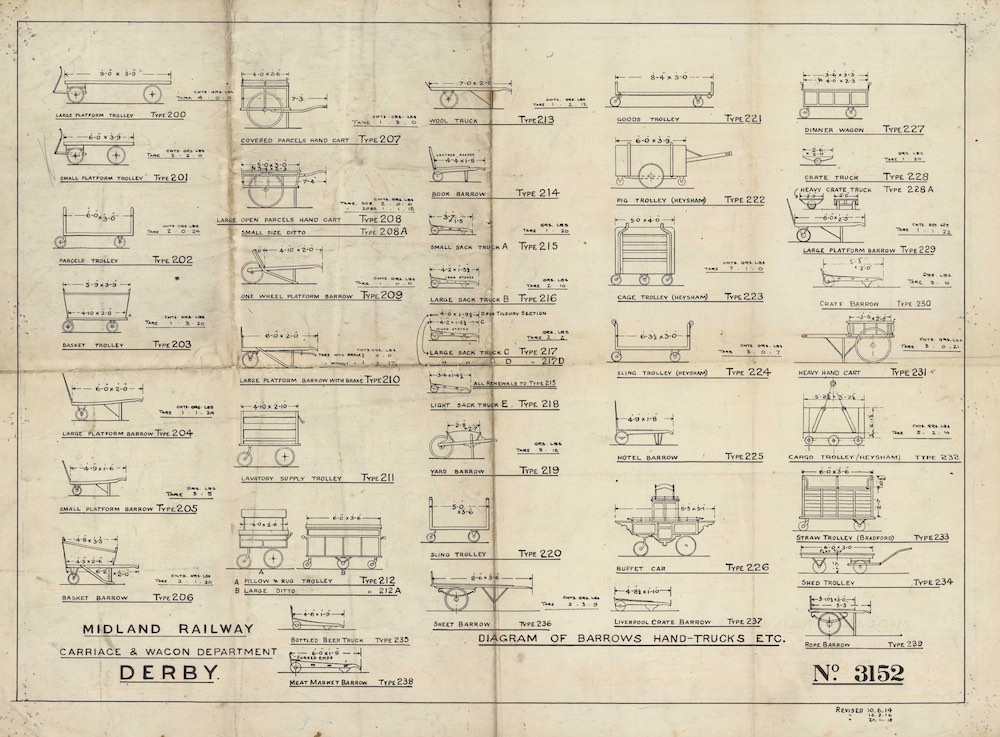 9-0 x 3-9
LARGE PLATFORM TROLLEY TYPE 200
6-0 x 3-9
TARE 3 . 2 . 0
SMALL PLATFORM TROLLEY TYPE 201
6-0 x 3-0
CWTS QRS LBS
TARE 2 . 0 . 24
PARCELS TROLLEY TYPE 202
5-9 x 3-9
4-10 x 2-8
TARE 1 . 3 . 20
BASKET TROLLEY TYPE 203
6-0 x 2-0
CWTS QRS LBS
TARE 1 . 1 . 24
LARGE PLATFORM BARROW TYPE 204
4-9 x 1-6
QRS LBS
TARE 3 . 5
SMALL PLATFORM BARROW TYPE 205
4-8 x 3-3
4-3 x 2-6
CWTS QRS LBS
TARE 2 . 1 . 20
BASKET BARROW TYPE 206
MIDLAND RAILWAY
CARRIAGE & WAGON DEPARTMENT
DERBY.
4-0 x 2-6
7-3
CWTS QRS LBS
TARE 1 . 3 . 0
COVERED PARCELS HAND CART TYPE 207
7-4
LARGE OPEN PARCELS HAND CART TYPE 208
SMALL SIZE DITTO TYPE 208A
4-10 x 2-0
CWTS QRS LBS
ONE WHEEL PLATFORM BARROW TYPE 209
6-0 x 2-0
LARGE PLATFORM BARROW WITH BRAKE TYPE 210
4-10 x 2-10
LAVATORY SUPPLY TROLLEY TYPE 211
4-0 x 2-6
6-0 x 3-6
A B
A PILLOW & RUG TROLLEY TYPE 212
B LARGE DITTO " 212A
4-6 x 1-9
BOTTLED BEER TRUCK TYPE 235
6-0 x 1-9
MEAT MARKET BARROW TYPE 238
CWTS QRS LBS
TARE 1 . 2 . 12
WOOL TRUCK TYPE 213
4-4 x 1-8
BOOK BARROW TYPE 214
QRS LBS
TARE 1 . 20
SMALL SACK TRUCK A TYPE 215
QRS LBS
TARE 2 . 10
LARGE SACK TRUCK B TYPE 216
TILBURY SECTION
QRS LBS
TARE 2 . 2
LARGE SACK TRUCK C TYPE 217
" " " D " 217D
ALL RENEWALS TO TYPE 215
LIGHT SACK TRUCK E TYPE 218
QRS LBS
TARE 3 . 12
YARD BARROW TYPE 219
5-0 x 3-6
SLING TROLLEY TYPE 220
8-6 x 3-6
CWTS QRS LBS
TARE 2 . 3 . 9
SHEET BARROW TYPE 236
8-4 x 3-0
GOODS TROLLEY TYPE 221
6-0 x 3-9
PIG TROLLEY (HEYSHAM) TYPE 222
5-0 x 4-0
CWTS QRS LBS
TARE 7 . 1 . 0
CAGE TROLLEY (HEYSHAM) TYPE 223
6-3½ x 3-0
CWTS QRS LBS
TARE 3 . 0 . 7
SLING TROLLEY (HEYSHAM) TYPE 224
4-9 x 1-8
HOTEL BARROW TYPE 225
BUFFET CAR TYPE 226
LIVERPOOL CRATE BARROW TYPE 237
DIAGRAM OF BARROWS HAND-TRUCKS ETC.
3-6 x 3-3
4-0 x 2-3
DINNER WAGON TYPE 227
QRS LBS
TARE 1 . 20
CRATE TRUCK TYPE 228
HEAVY CRATE TRUCK TYPE 228A
6-0 x 2-0
CWTS QRS LBS
TARE 1 . 1 . 22
LARGE PLATFORM BARROW TYPE 229
5-3
x 2-0
QRS LBS
TARE 3 . 0
CRATE BARROW TYPE 230
CWTS QRS LBS
TARE 3 . 0 . 21
HEAVY HAND CART TYPE 231
CWTS QRS LBS
TARE 5 . 2 . 14
CARGO TROLLEY (HEYSHAM) TYPE 232
6-0 x 3-6
STRAW TROLLEY (BRADFORD) TYPE 233
6-0 x 3-0
FLAT TOP
SHED TROLLEY TYPE 234
ROPE BARROW TYPE 239
No. 3152
REVISED 10.6.14